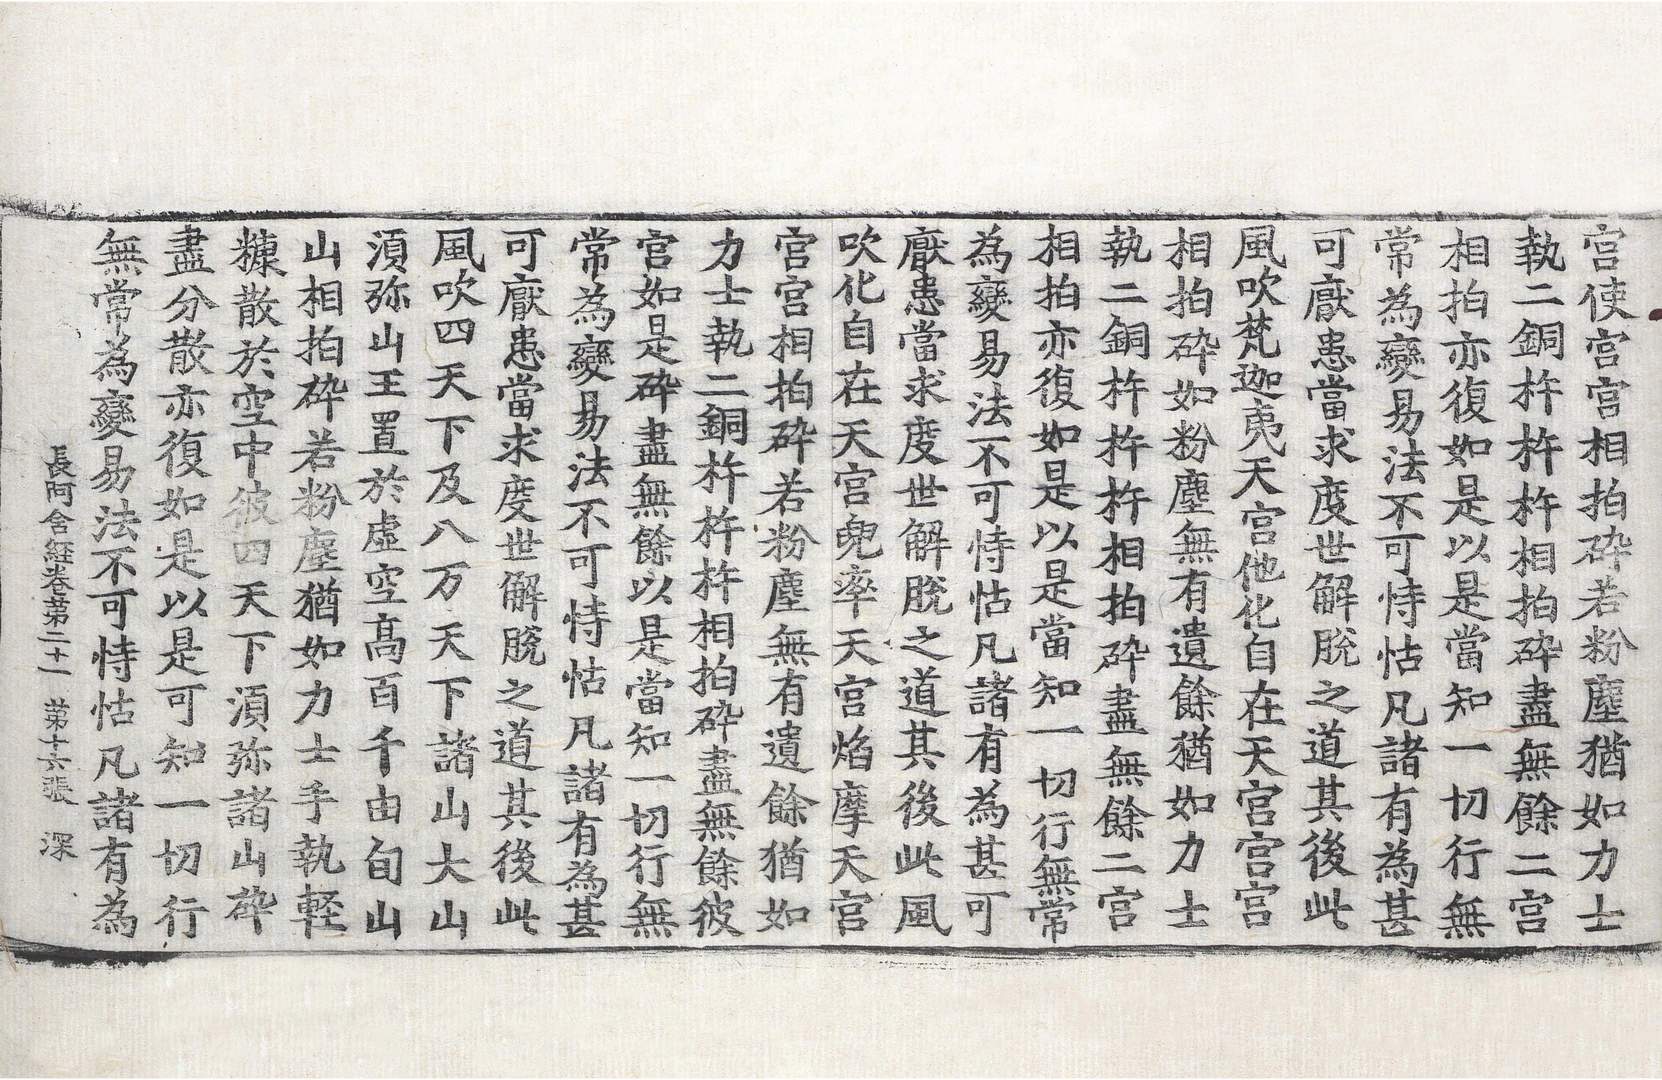 宮使宮宮相拍碎若粉塵猶如力士
執二銅杵杵杵相拍碎盡無餘二宮
相拍亦復如是以是當知一切行無
常為變易法不可恃怙凡諸有為甚
可厭患當求度世解脫之道其後此
風吹梵迦夷天宮他化自在天宮宮宮
相拍碎如粉塵無有遺餘猶如力士
執二銅杵杵杵相拍碎盡無餘二宮
相拍亦復如是以是當知一切行無常
為變易法不可恃怙凡諸有為甚可
厭患當求度世解脫之道其後此風
吹化自在天宮兜率天宮焰摩天宮
宮宮相拍碎若粉塵無有遺餘猶如
力士執二銅杵杵杵相拍碎盡無餘彼
宮如是碎盡無餘以是當知一切行無
常為變易法不可恃怙凡諸有為甚
可厭患當求度世解脫之道其後此
風吹四天下及八万天下諸山大山
須弥山王置於虛空高百千由旬山
山相拍碎若粉塵猶如力士手執輕
糠散於空中彼四天下須弥諸山碎
盡分散亦復如是以是可知一切行
無常為變易法不可恃怙凡諸有為
長阿含經卷第二十一 第十六張 深